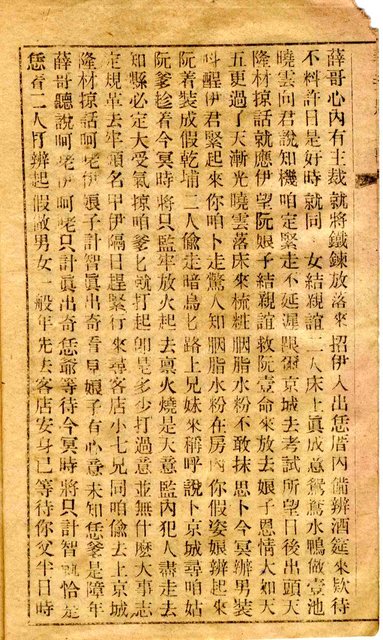 薛哥心內有主裁 就將鐵鍊放落來 招伊入出恁厝內 備辨酒筵來欵待
不料許日是好時 就同 女結親誼 二人床上眞成意 鴛鴦水鴨做壹池
曉雲向君說知機 咱定緊走不延遲 爾京城去考試 所望日後出頭天
隆材掠話就應伊 望阮娘子結親誼 救阮壹命來放去 娘子恩情大如天
五更過了天漸光 曉雲落床來梳粧 胭脂水粉不敢抹 思卜今冥辦男裝
叫醒伊君緊起來 你咱卜走驚人知 胭脂水粉不在房內 你假姿娘我辦
阮着裝成假乾埔 二人偷走暗鳥七 路上兄妹來稱呼 說卜京城尋咱姑
阮爹趁着今冥時 將只監牢放火起 去禀火燒是天意 監內犯人盡走去
知縣必定大受氣 掠咱爹七就打起 卽是多少打過意 並無什麽大事志
定規革去牢頭名 甲伊隔日趕緊行 來尋客店小七兄 同咱偷去上京城
隆材掠話呵咾伊 娘子計智眞出奇 看早娘子有心意 未知恁爹是障年
薛哥聽說呵咾伊 呵咾只計眞出奇 恁爺等待今冥時 將只計智 恰是
恁看二人打辨起 假敵男女一般年 先去客店安身己 等待你父半日時